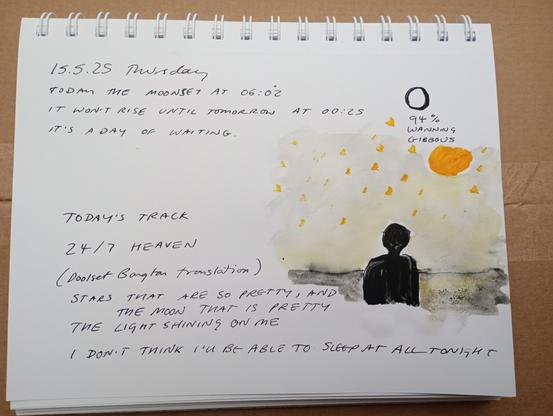 15.5.25 Thursday
TODAY THE MOONSET AT 06:02
IT WON'T RISE UNTIL TOMORROW AT 00:25
IT'S A DAY OF WAITING.
94%
WANNING
GIBBOUS
TODAY'S TRACK
24/7 HEAVEN
(Doolset Bangtan translation)
STARS THAT ARE SO PRETTY, AND
THE MOON THAT IS PRETTY
THE LIGHT SHINING ON ME
I DON'T THINK I'LL BE ABLE TO SLEEP AT ALL TONIGHT